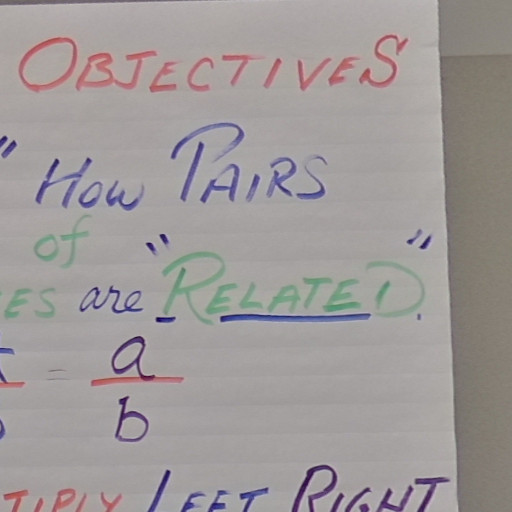 OBJECTIVES
" HOW PAIRS
of
ARE "RELATED."
= a
b
LEFT RIGHT